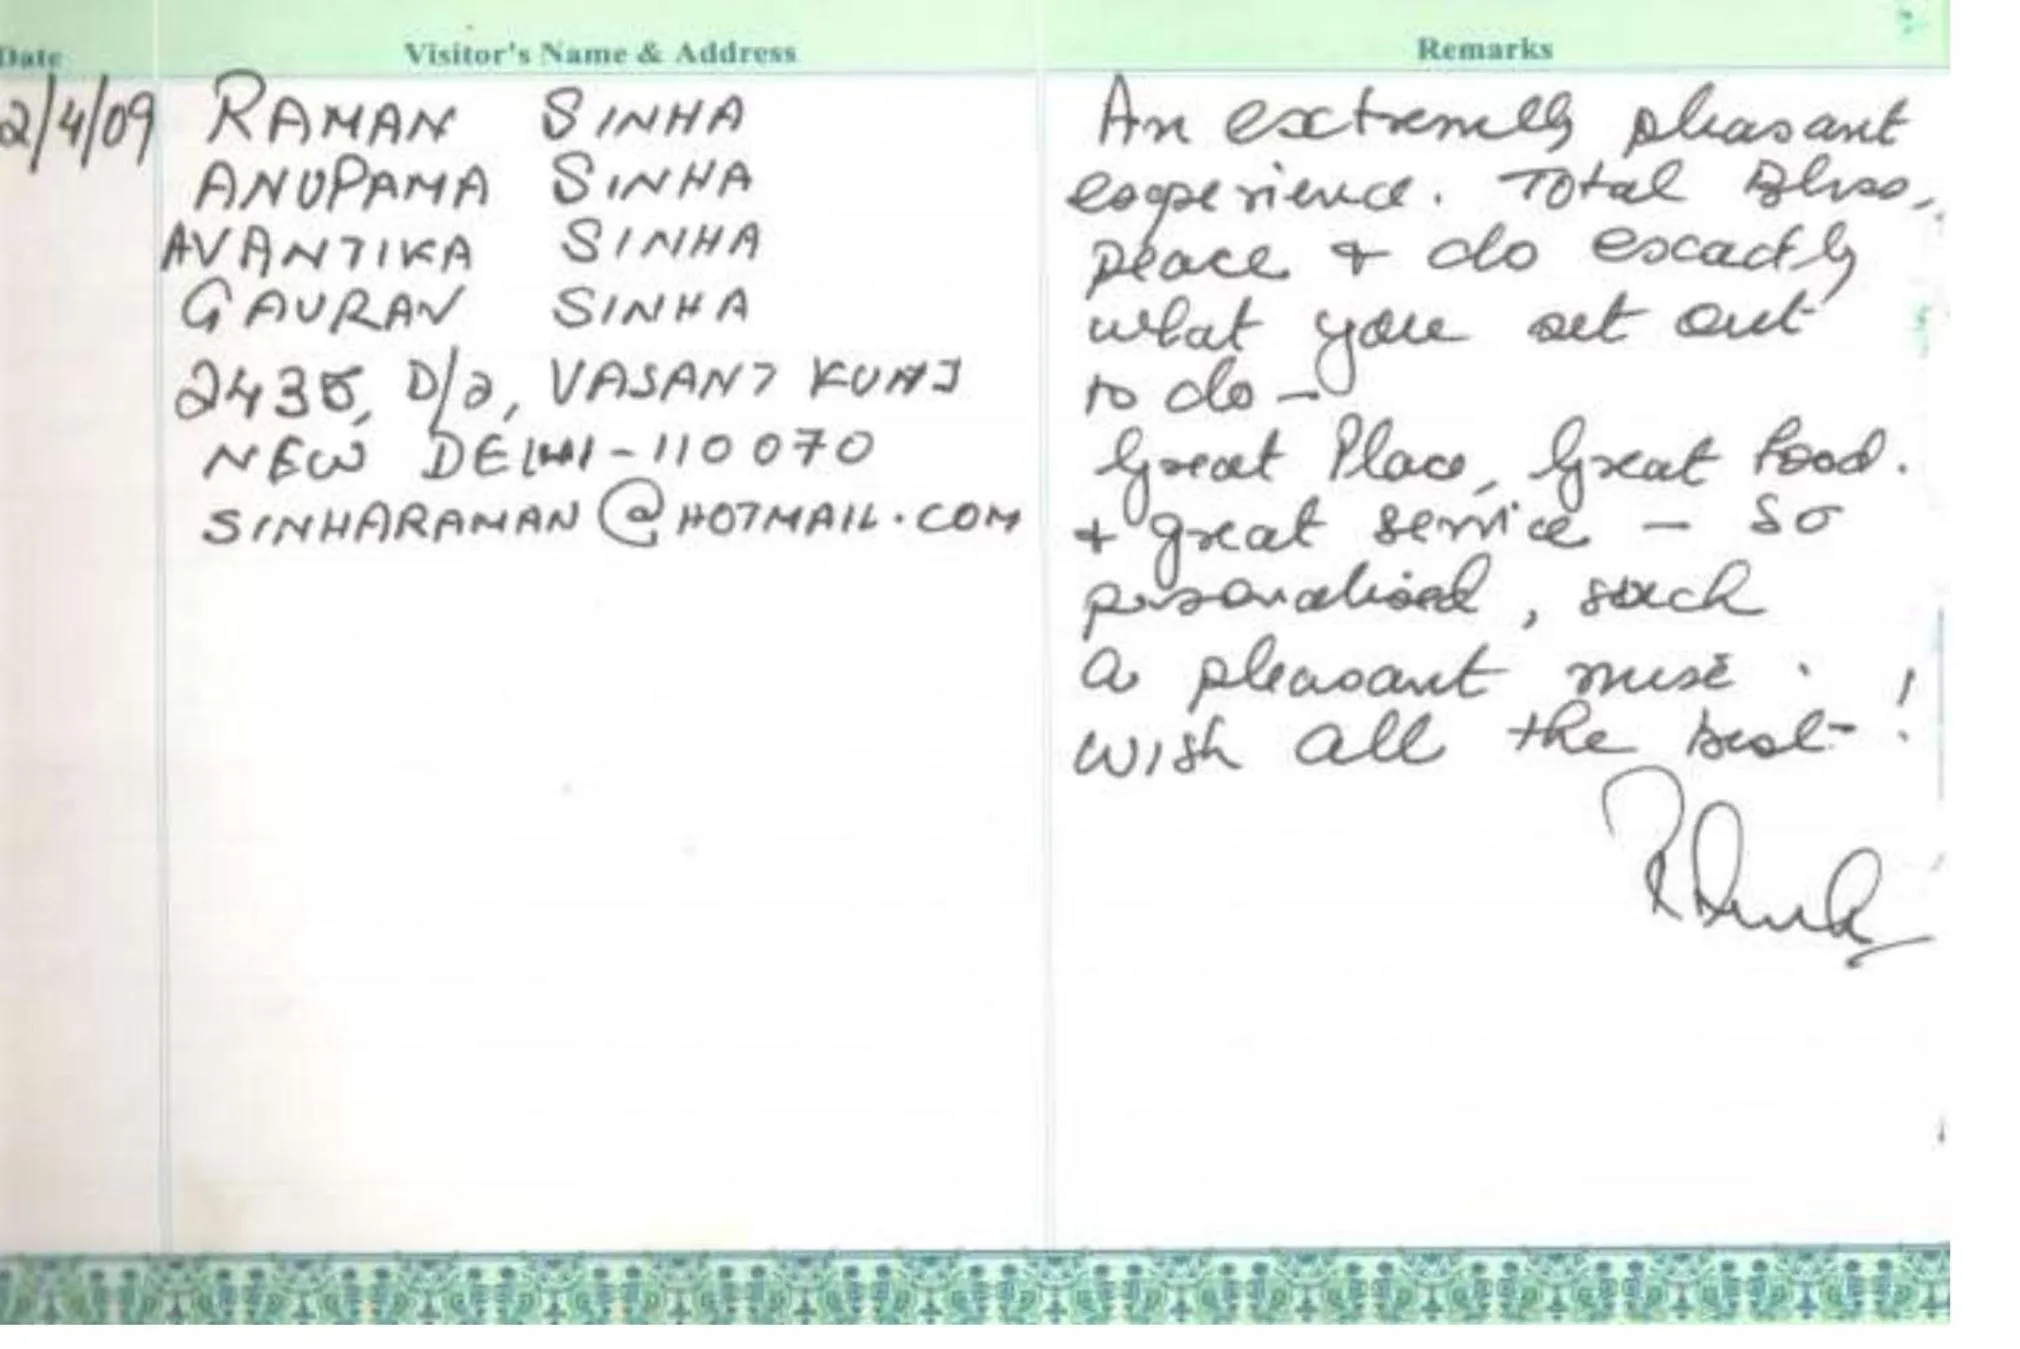 Date Visitor's Name & Address Remarks
2/4/09
RAMAN SINHA
ANUPAMA SINHA
AVANTIKA SINHA
GAURAV SINHA
2435, D/2, VASANT KUNJ
NEW DELHI-110070
SINHARAMAN@HOTMAIL.COM
An extremely pleasant
experience. Total Bliss,
peace & do exactly
what you set out
to do -
Great Place, Great Food.
+ great service - so
personalised, such
a pleasant
wish all the best !